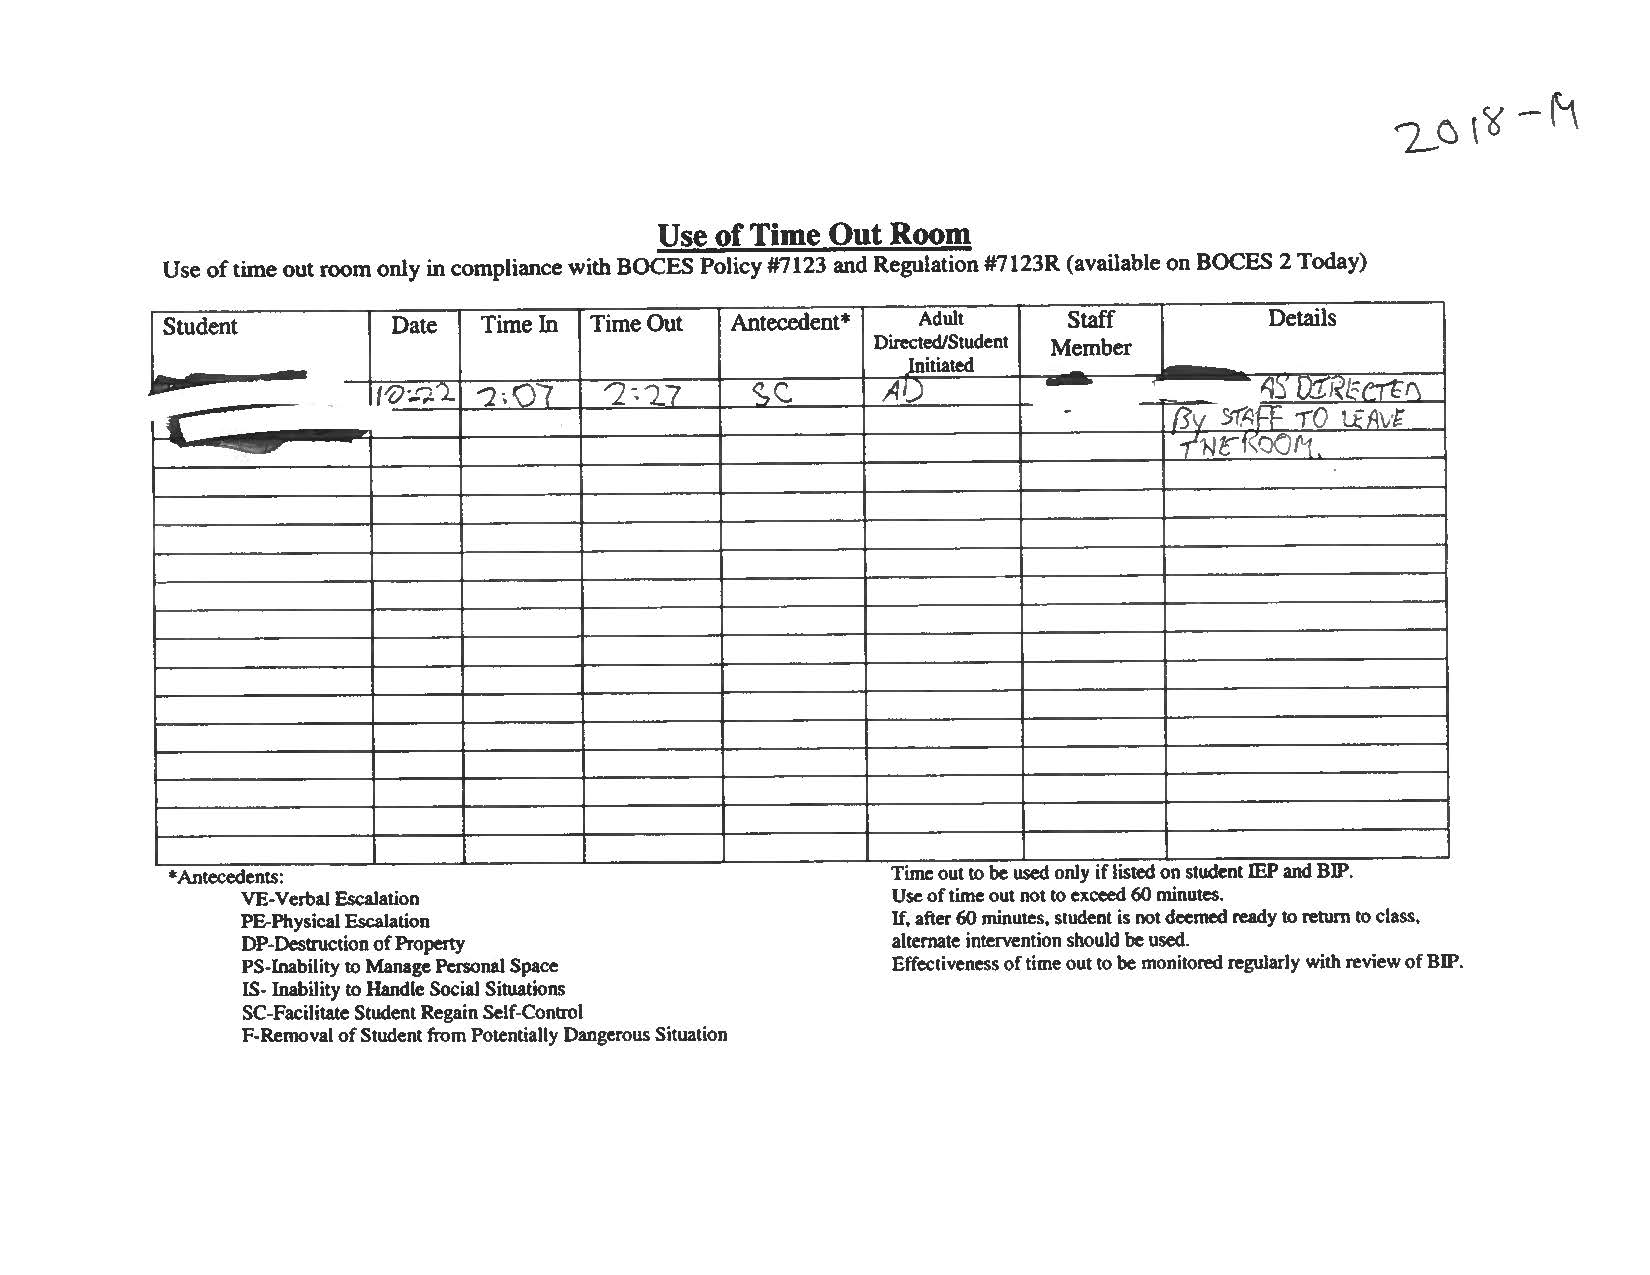 2018-19
Use of Time Out Room
Use of time out room only in compliance with BOCES Policy #7123 and Regulation #7123R (available on BOCES 2 Today)
Student Date Time In Time Out Antecedent* Adult Directed/Student Initiated Staff Member Details
10:22 2:07 2:27 SC AD AS DIRECTED
BY STAFF TO LEAVE
THE ROOM.
*Antecedents:
VE-Verbal Escalation
PE-Physical Escalation
DP-Destruction of Property
PS-Inability to Manage Personal Space
IS- Inability to Handle Social Situations
SC-Facilitate Student Regain Self-Control
F-Removal of Student from Potentially Dangerous Situation
Time out to be used only if listed on student IEP and BIP.
Use of time out not to exceed 60 minutes.
If, after 60 minutes, student is not deemed ready to return to class,
alternate intervention should be used.
Effectiveness of time out to be monitored regularly with review of BIP.